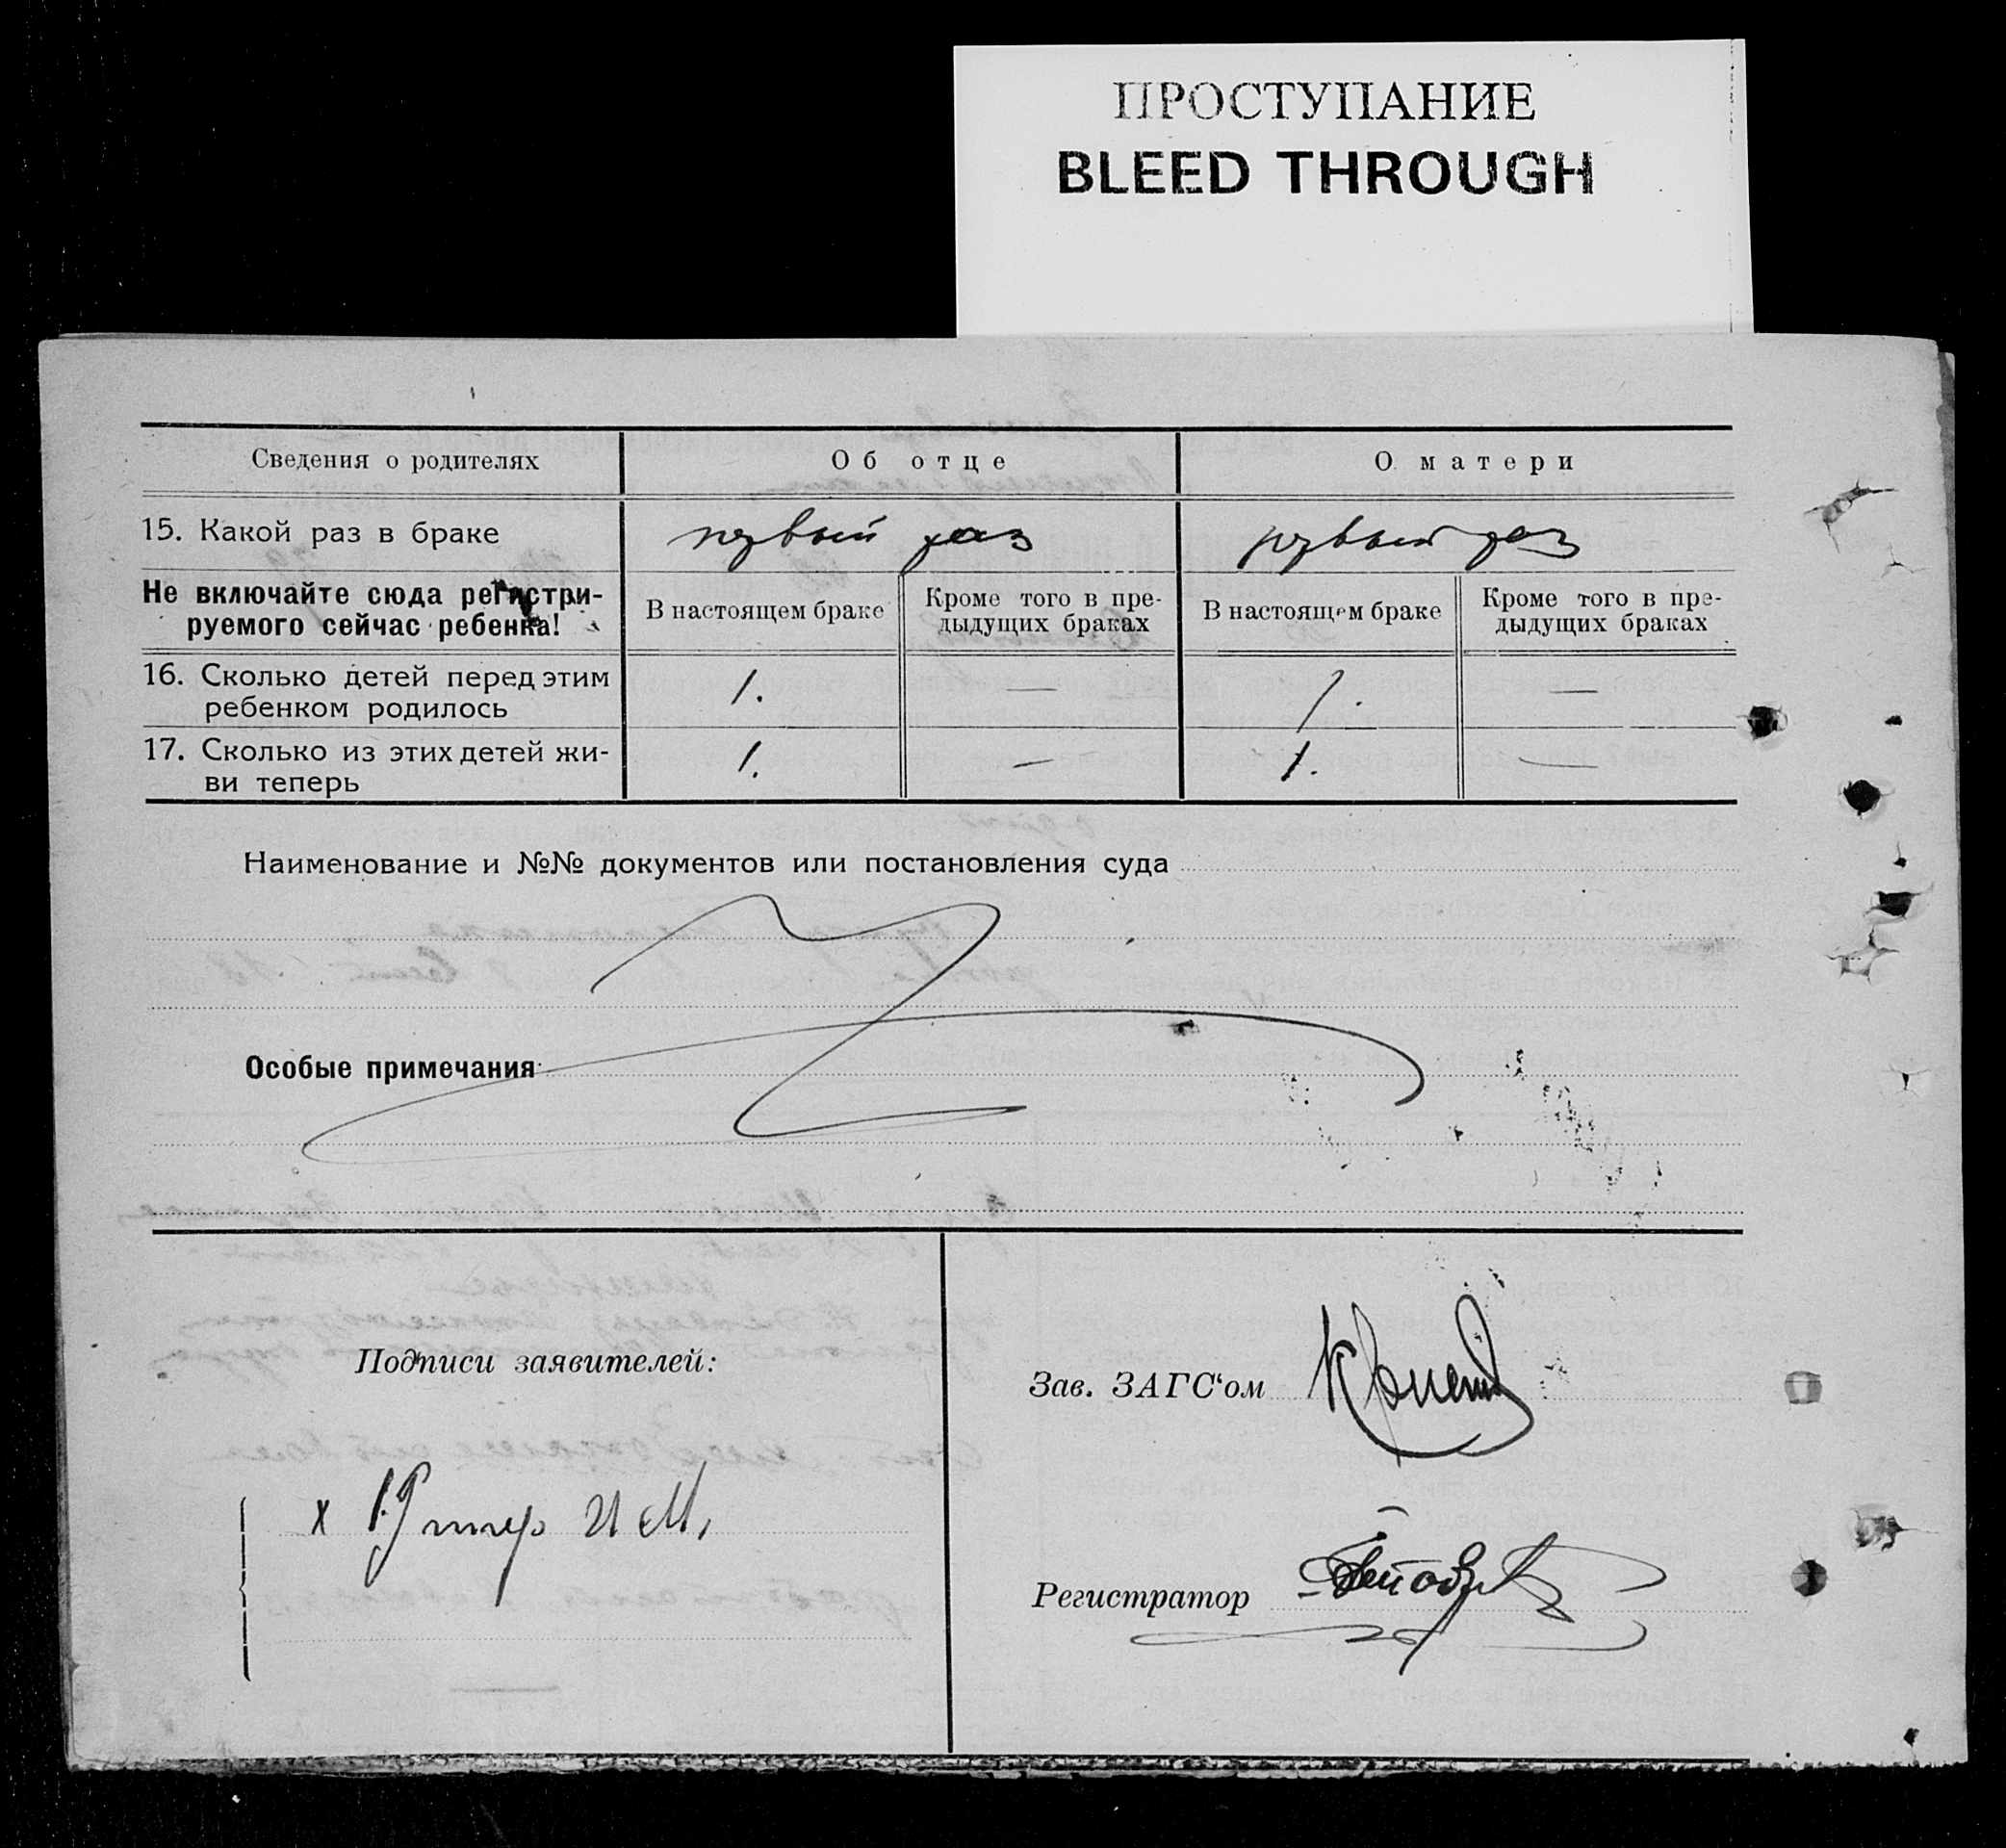 ПРОСТУПАНИЕ
BLEED THROUGH
Сведения о родителях
Об отце
О матери
15. Какой раз в браке
первый раз
первый раз
Не включайте сюда регистри-
руемого сейчас ребенка!
В настоящем браке
Кроме того в пре-
дыдущих браках
В настоящем браке
Кроме того в пре-
дыдущих браках
16. Сколько детей перед этим
ребенком родилось
1.
—
1.
—
17. Сколько из этих детей жи-
ви теперь
1.
—
1.
—
Наименование и №№ документов или постановления суда
Особые примечания
Подписи заявителей:
Зав. ЗАГС‘ом
х
И М,
Регистратор